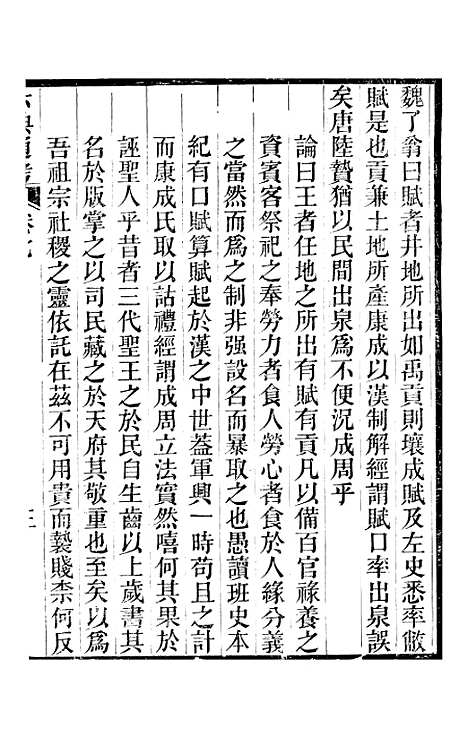 魏了翁曰賦者井地所出如禹貢則壤成賦及左史悉率敝
賦是也貢兼土地所產康成以漢制解經謂賦口率出泉誤
矣唐陸贄猶以民間出泉爲不便況成周乎
論曰王者任地之所出有賦有貢凡以備百官祿養之
資賓客祭祀之奉勞力者食人勞心者食於人緣分義
之當然而爲之制非强設名而暴取之也愚讀班史本
紀有口賦算賦起於漢之中世葢軍興一時苟且之計
而康成氏取以詁禮經謂成周立法實然嘻何其果於
誣聖人乎昔者三代聖王之於民自生齒以上歲書其
名於版掌之以司民藏之於天府其敬重也至矣以爲
吾祖宗社稷之靈依託在茲不可用貴而褻賤柰何反
六典通考
卷七